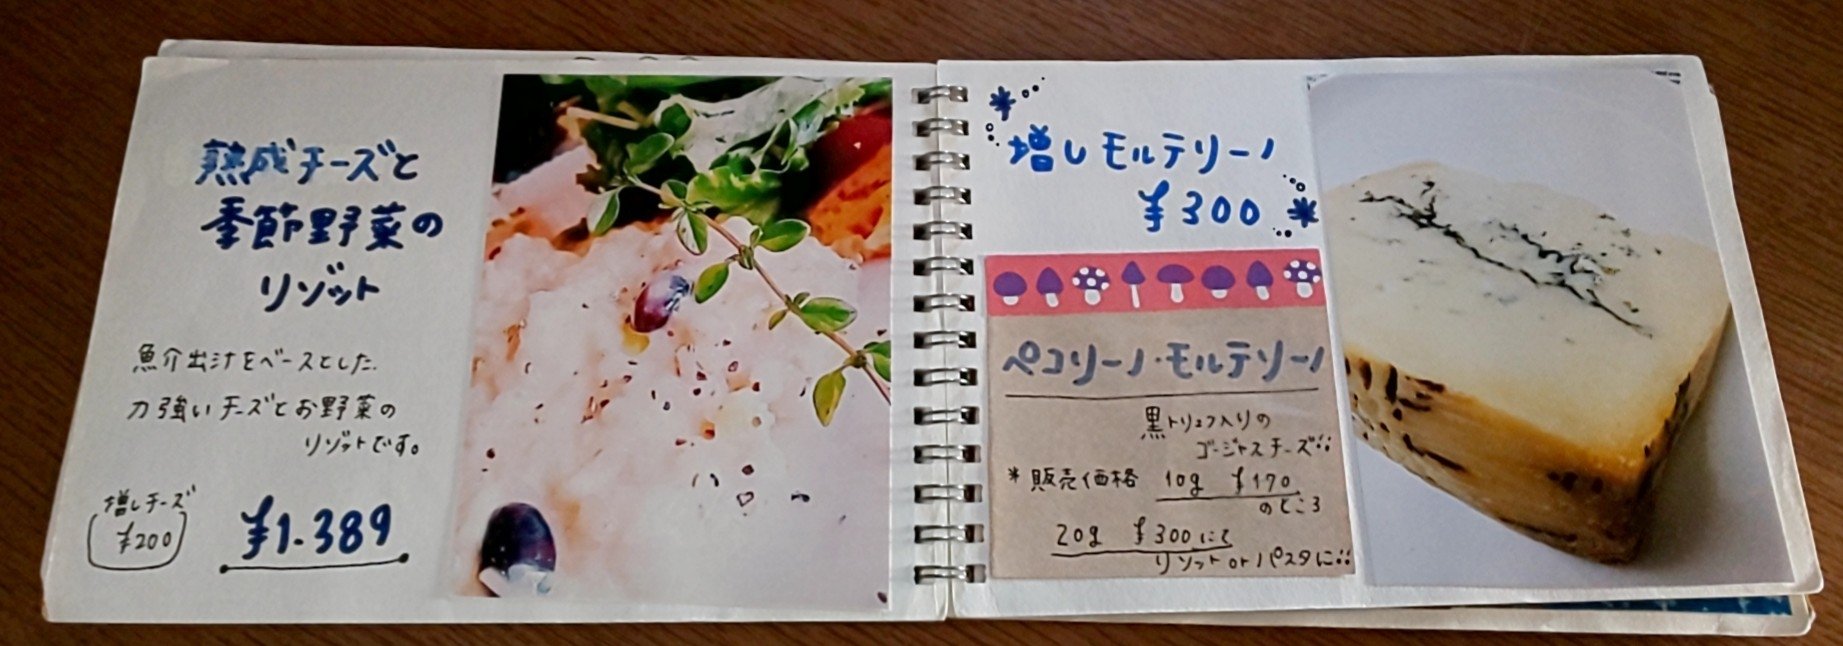 熟成チーズと
季節野菜の
リゾット
魚介出汁をベースとした
力強いチーズとお野菜の
リゾットです。
増しチーズ
¥200
¥1.389
増しモルテリーノ
¥300
ペコリーノ・モルテソーノ
黒トリュフ入りの
ゴージャスチーズ!!
*販売価格 10g ¥170
のところ
20g ¥300にて
リゾットorパスタに!!